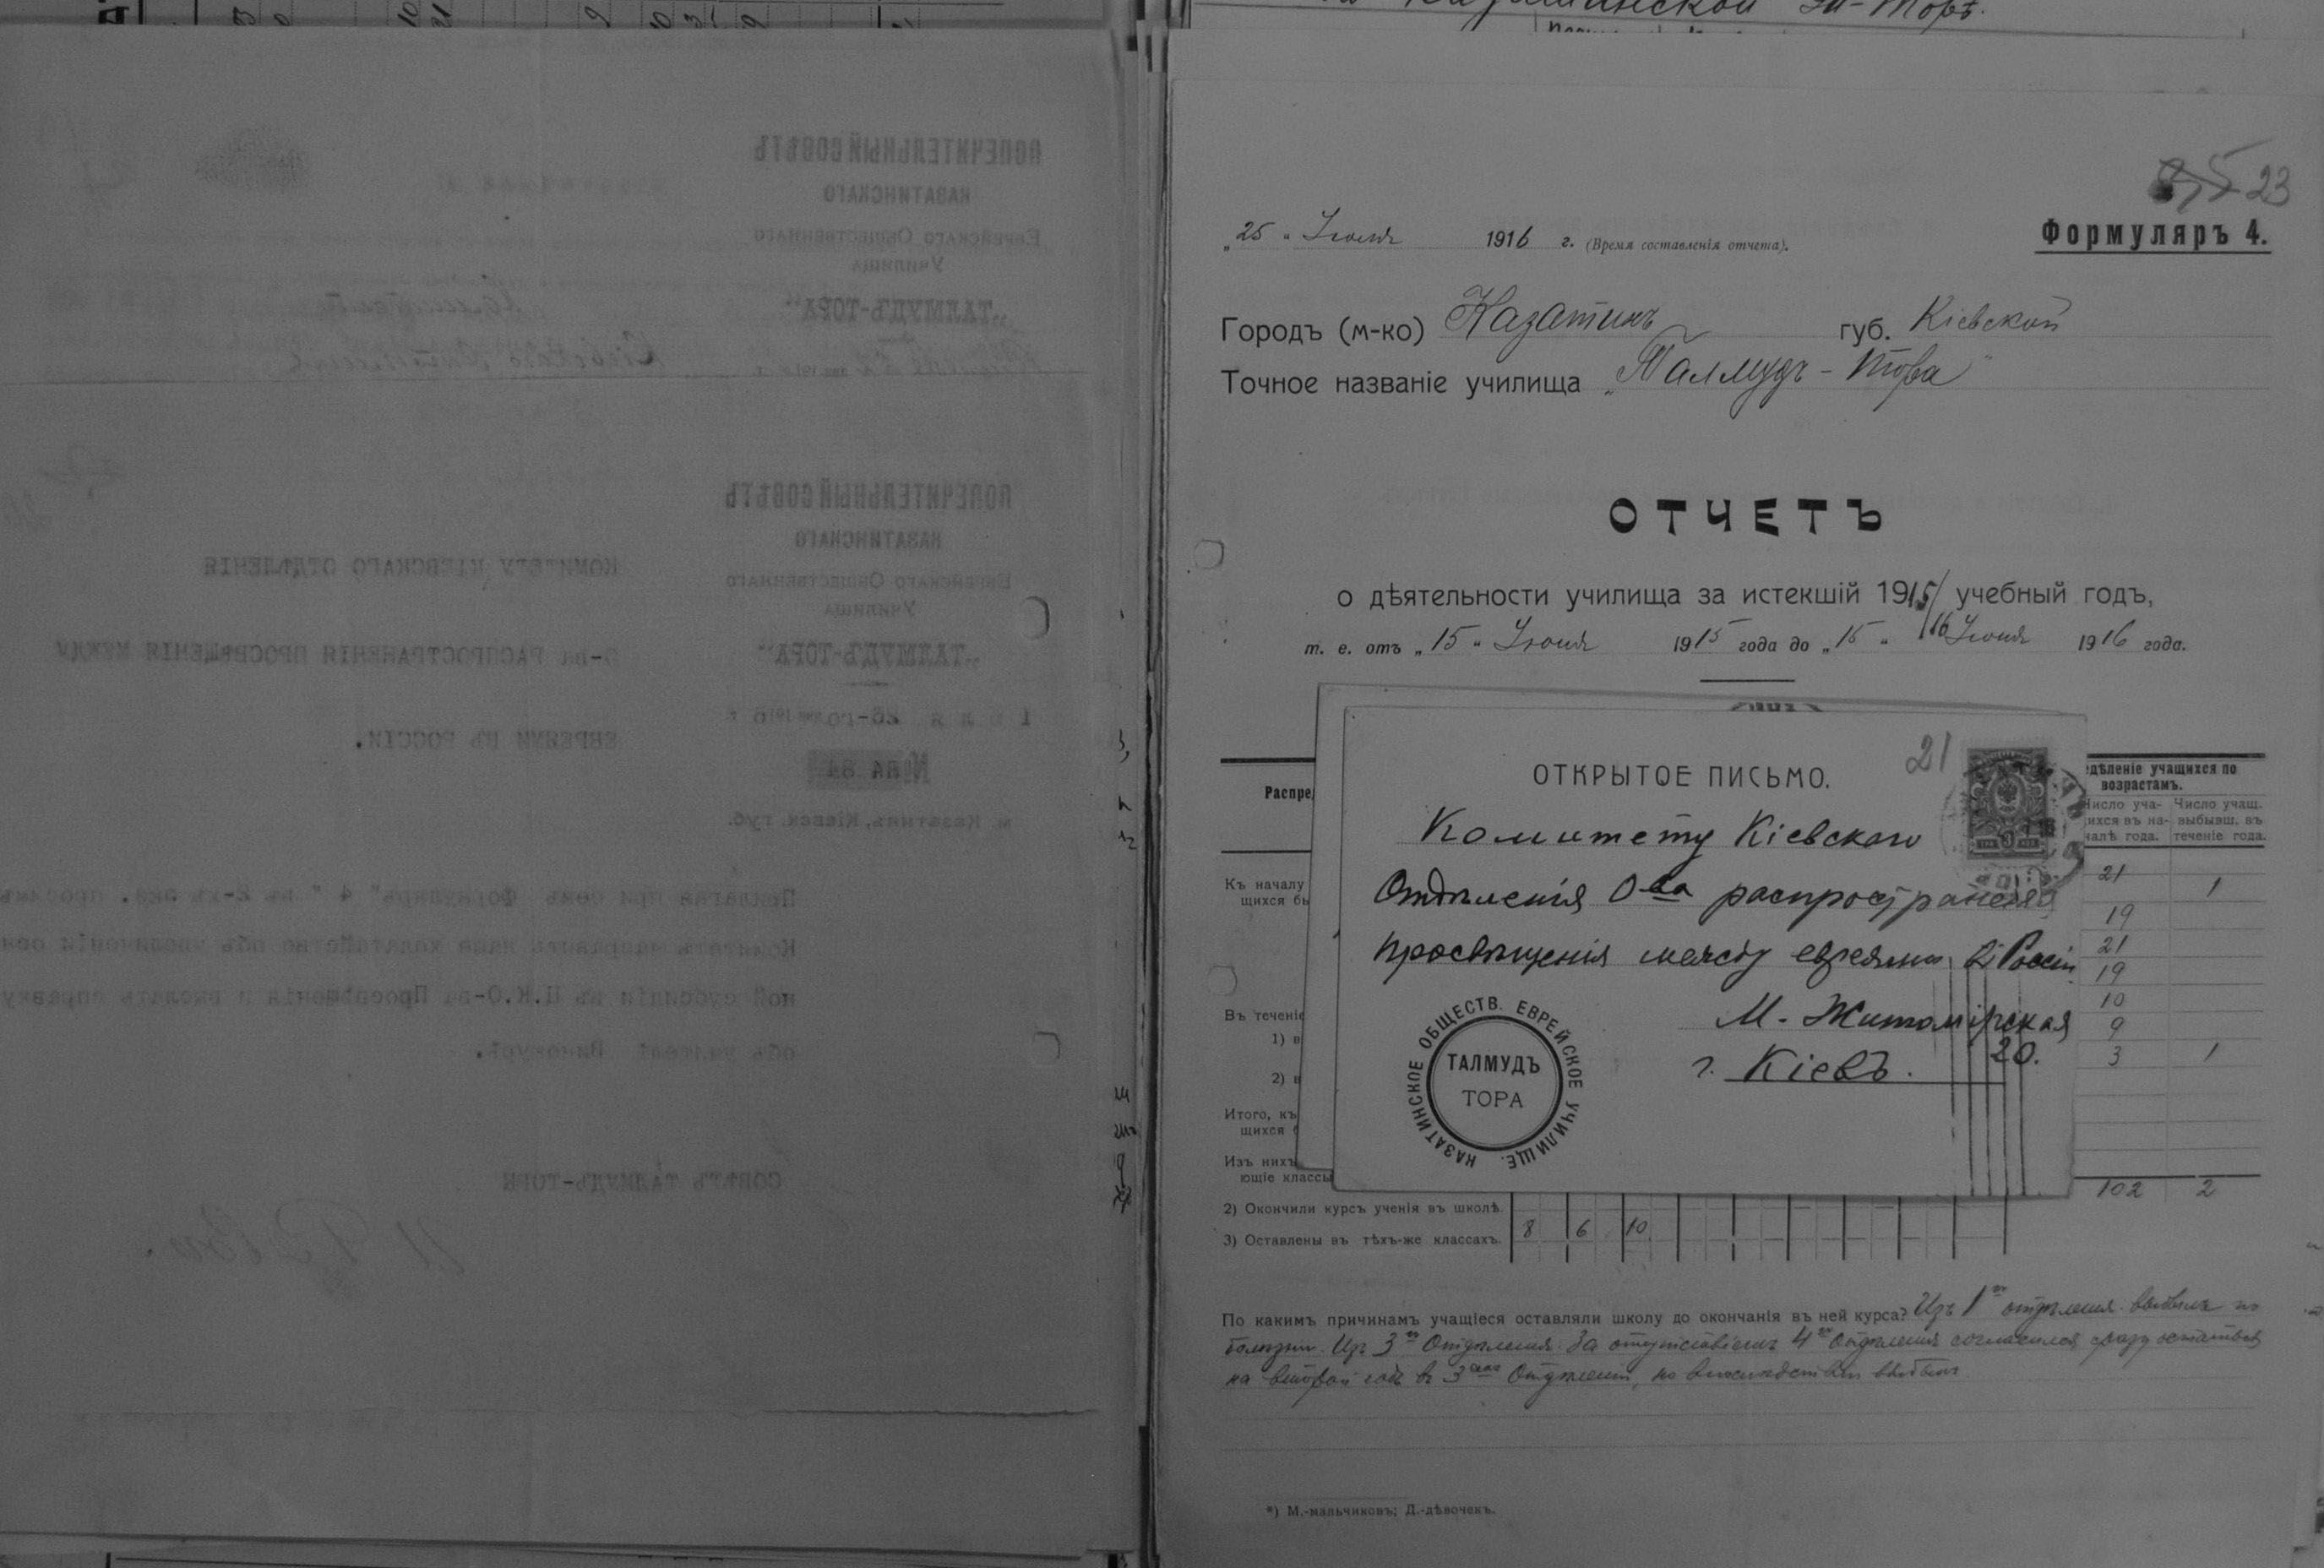 ПОПЕЧИТЕЛЬНЫЙ СОВѢТЪ
КАЗАТИНСКАГО
ЕВРЕЙСКАГО ОБЩЕСТВЕННАГО
УЧИЛИЩА
„ТАЛМУДЪ-ТОРА“
ПОПЕЧИТЕЛЬНЫЙ СОВѢТЪ
КАЗАТИНСКАГО
ЕВРЕЙСКАГО ОБЩЕСТВЕННАГО
УЧИЛИЩА
„ТАЛМУДЪ-ТОРА“
м. Казатинъ, Кіевск. губ.
КОМИТЕТУ КІЕВСКАГО ОТДѢЛЕНІЯ
О-ва РАСПРОСТРАНЕНІЯ ПРОСВѢЩЕНІЯ МЕЖДУ
ЕВРЕЯМИ ВЪ РОССІИ.
Прилагая при семъ Формуляръ "4" въ 2-хъ экз. просимъ
Комитетъ направить наше ходатайство объ увеличеніи
ной субсидіи въ Ц.К.О-ва Просвѣщенія и выслать справку
объ учителѣ Винокурѣ.
СОВѢТЪ ТАЛМУДЪ-ТОРЫ
23
Формуляръ 4.
„25“ Іюля 1916 г. (Время составленія отчета).
Городъ (м-ко) Казатинъ губ. Кіевской
Точное названіе училища „Талмудъ-Тора“
ОТЧЕТЪ
о дѣятельности училища за истекшій 1915/16 учебный годъ,
т. е. отъ „15“ Іюня 1915 года до „15“ Іюня 1916 года.
21
ОТКРЫТОЕ ПИСЬМО.
Комитету Кіевскаго
Отдѣленія О-ва распространенія
просвѣщенія между евреями въ Россіи
М-Житомірская
20.
г. Кіевъ.
КАЗАТИНСКОЕ ОБЩЕСТВ. ЕВРЕЙСКОЕ УЧИЛИЩЕ.
ТАЛМУДЪ
ТОРА
Распре
дѣленіе учащихся по
возрастамъ.
Число уча- Число учащ.
щихся въ на- выбывш. въ
чалѣ года. теченіе года.
Къ началу
щихся бы
21 1
19
21
19
10
9
3 1
Въ теченіе
1) в
2) в
Итого, къ
щихся
Изъ нихъ
ющіе классы
102 2
2) Окончили курсъ ученія въ школѣ.
3) Оставлены въ тѣхъ-же классахъ. 8 6 10
По какимъ причинамъ учащіеся оставляли школу до окончанія въ ней курса? Изъ 1го отдѣленія выбылъ по
болѣзни. Изъ 3го Отдѣленія за отсутствіемъ 4го отдѣленія согласился сразу остаться
на второй годъ въ 3емъ Отдѣленіи, но впослѣдствіи выбылъ
*) М.-мальчиковъ; Д.-дѣвочекъ.